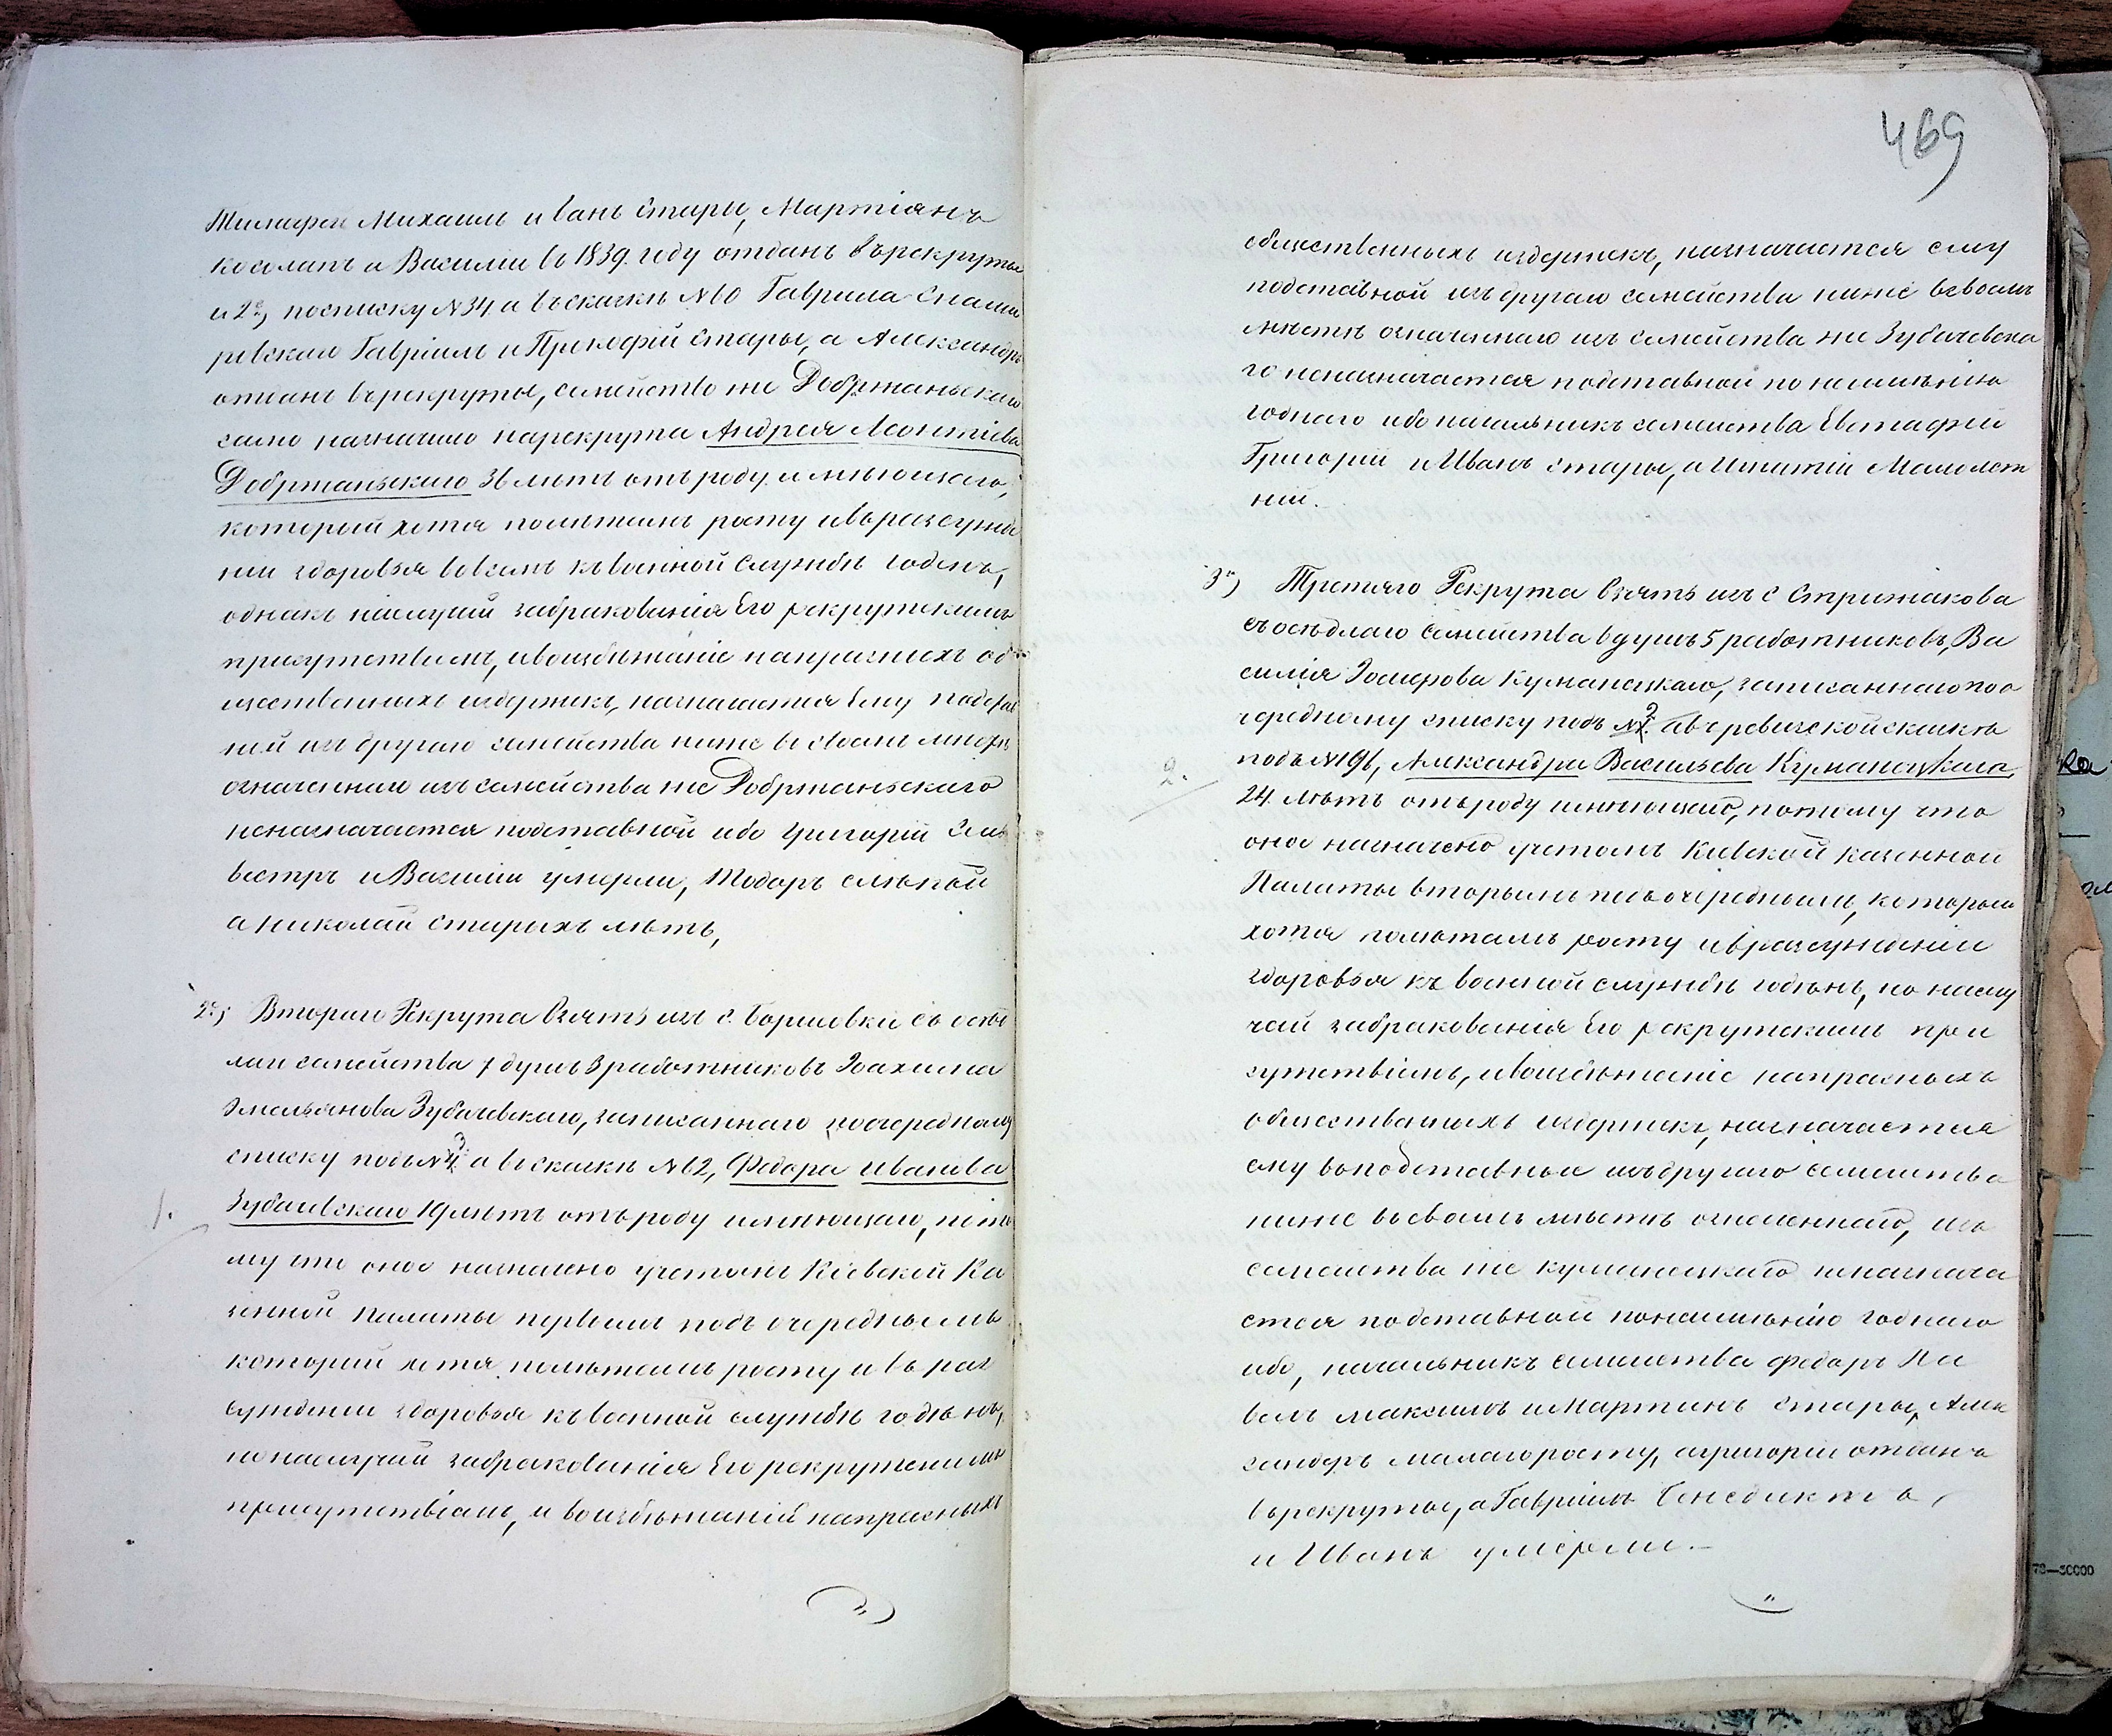 Михаилъ и Іванъ стары, Мартіянъ
косолапъ а Василій въ 1839. году отданъ върекруты
и 2е, посписку №34. а въсказкѣ №60 Гаврила
Гавріилъ и Прокофій стары, а Александръ
отданъ върекруты, семейство же Добржаньскаго
само назначило нарекрута Андрея Леонтіева
Добржаньскаго 36 лѣтъ отъ роду имѣющаго,
который хотя полѣтамъ росту ивъразсужде
ніи здоровья вовсемъ къ военной службѣ годенъ,
однакъ наслучай забракованія Его рекрутскимъ
присутствіемъ, ивоизбѣжаніе напрасныхъ об
щественныхъ издержекъ, назначается Ему подстав
ной изъ другаго семейства ниже въ своемъ мѣстѣ
означеннаго изъ семейства же Добржаньскаго
неназначается подставной ибо Григорій Сил
вестръ и Василій умерли, Тодоръ слѣпой
а Николай старыхъ лѣтъ,
2е, Втораго Рекрута взять изъ с. Боршовки съ осѣд
лаго семейства 7 душъ 3 работниковъ Іоахима
Эмельянова Зубачевскаго, записаннаго поочередному
списку подъ №4. 3 а въ сказкѣ №62, Федора Иванова
1. Зубачевскаго 19 лѣтъ отъ роду имѣющаго, пото
му что оное назначено учетомъ Кіевской Ка
зенной Палаты первымъ подъ очереднымъ
который хотя полѣтамъ росту и въ раз
сужденіи здоровья къ военной службѣ годѣнъ,
но наслучай забракованія Его рекрутскимъ
присутствіемъ, и воизбѣжаніе напрасныхъ
469
общественныхъ издержекъ, назначается ему
подставной изъ другаго семейства ниже въ своемъ
мѣстѣ означеннаго изъ семейства же Зубачевска
го неназначается подставной по неимѣнію
годнаго ибо начальникъ семейства Евстафій
Григорій и Иванъ стары, а Игнатій Малолѣт
ній.
3е, Третяго Рекрута взять изъ с Стрижакова
съ осѣдлаго семейства 8 душъ 5 работниковъ, Ва
силія Іосифова Куманецкаго, записаннаго поо
чередному списку подъ № 2. авъревизской сказкѣ
2. подъ №196, Александра Васильева Куманецкаго,
24. лѣтъ отъ роду имѣющаго, потому что
оное назначено учетомъ Кіевской казенной
Палаты вторымъ подъочереднымъ, который
хотя полѣтамъ росту ивразсужденіи
здоровья къ военной службѣ годѣнъ, но наслу
чай забракованія Его рекрутскимъ при
сутствіемъ, ивоизбѣжаніе напрасныхъ
общественныхъ издержекъ, назначается
ему въподставные изъ другаго семейства
ниже въ своемъ мѣстѣ означеннаго, изъ
семейства же Куманецкаго неназнача
ется подставной понеимѣнію годнаго
ибо, начальникъ семейства Федоръ Па
велъ Максимъ и Мартинъ стары, Алек
сандеръ малаго росту, а Григорій отданъ
върекруты, а Гавріилъ Венедиктъ,
и Иванъ умерли.